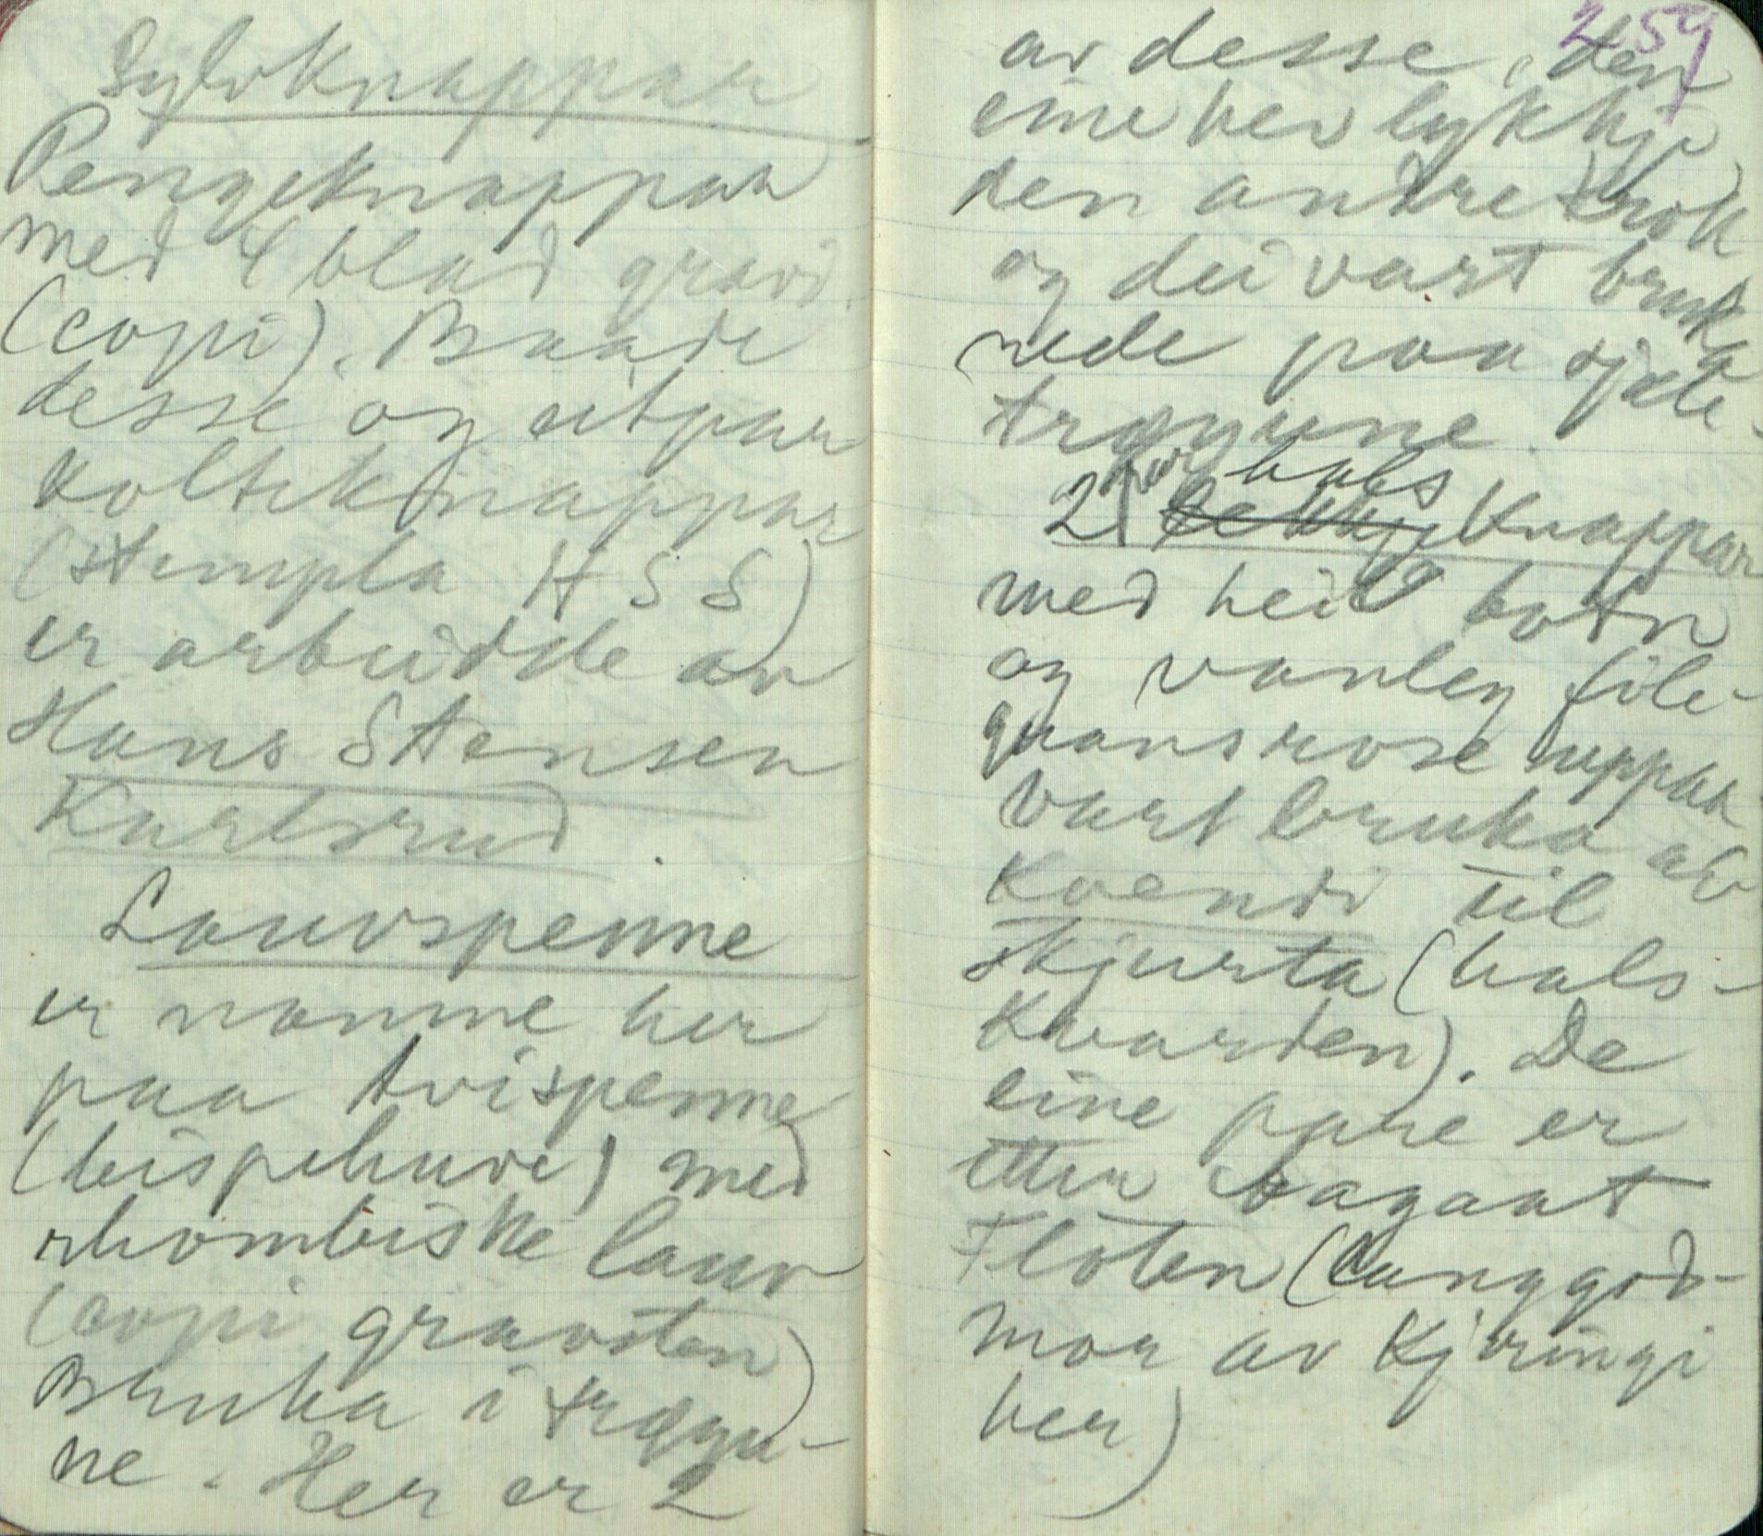 Sylvknappar
Pengeknappar
med 4 blad grovi
(copi). Baade
desse og eit par
kolteknappar
(stempla H S S)
er arbeidde av
Hans Stensen
Karlsrud.
Lauvspenne
er namne her
paa tvispenne
(bispehuve) med
rhombiske lauv
(copi gravsten)
Bruka i trøyu-
ne. Her er 2
259
av desse, den
eine hev lykkje
den andre krok
og dei vart bruka
nede paa sjøle-
trøyune.
2 par hals
lekkje Knappar
med heil botn
og vanleg file-
gransrose uppaa
vart bruka av
Kvendi til
skjurta (hals-
kvarden). De
eine pare er
etter
Fløten (langgod-
mor av Kjeringi
her)